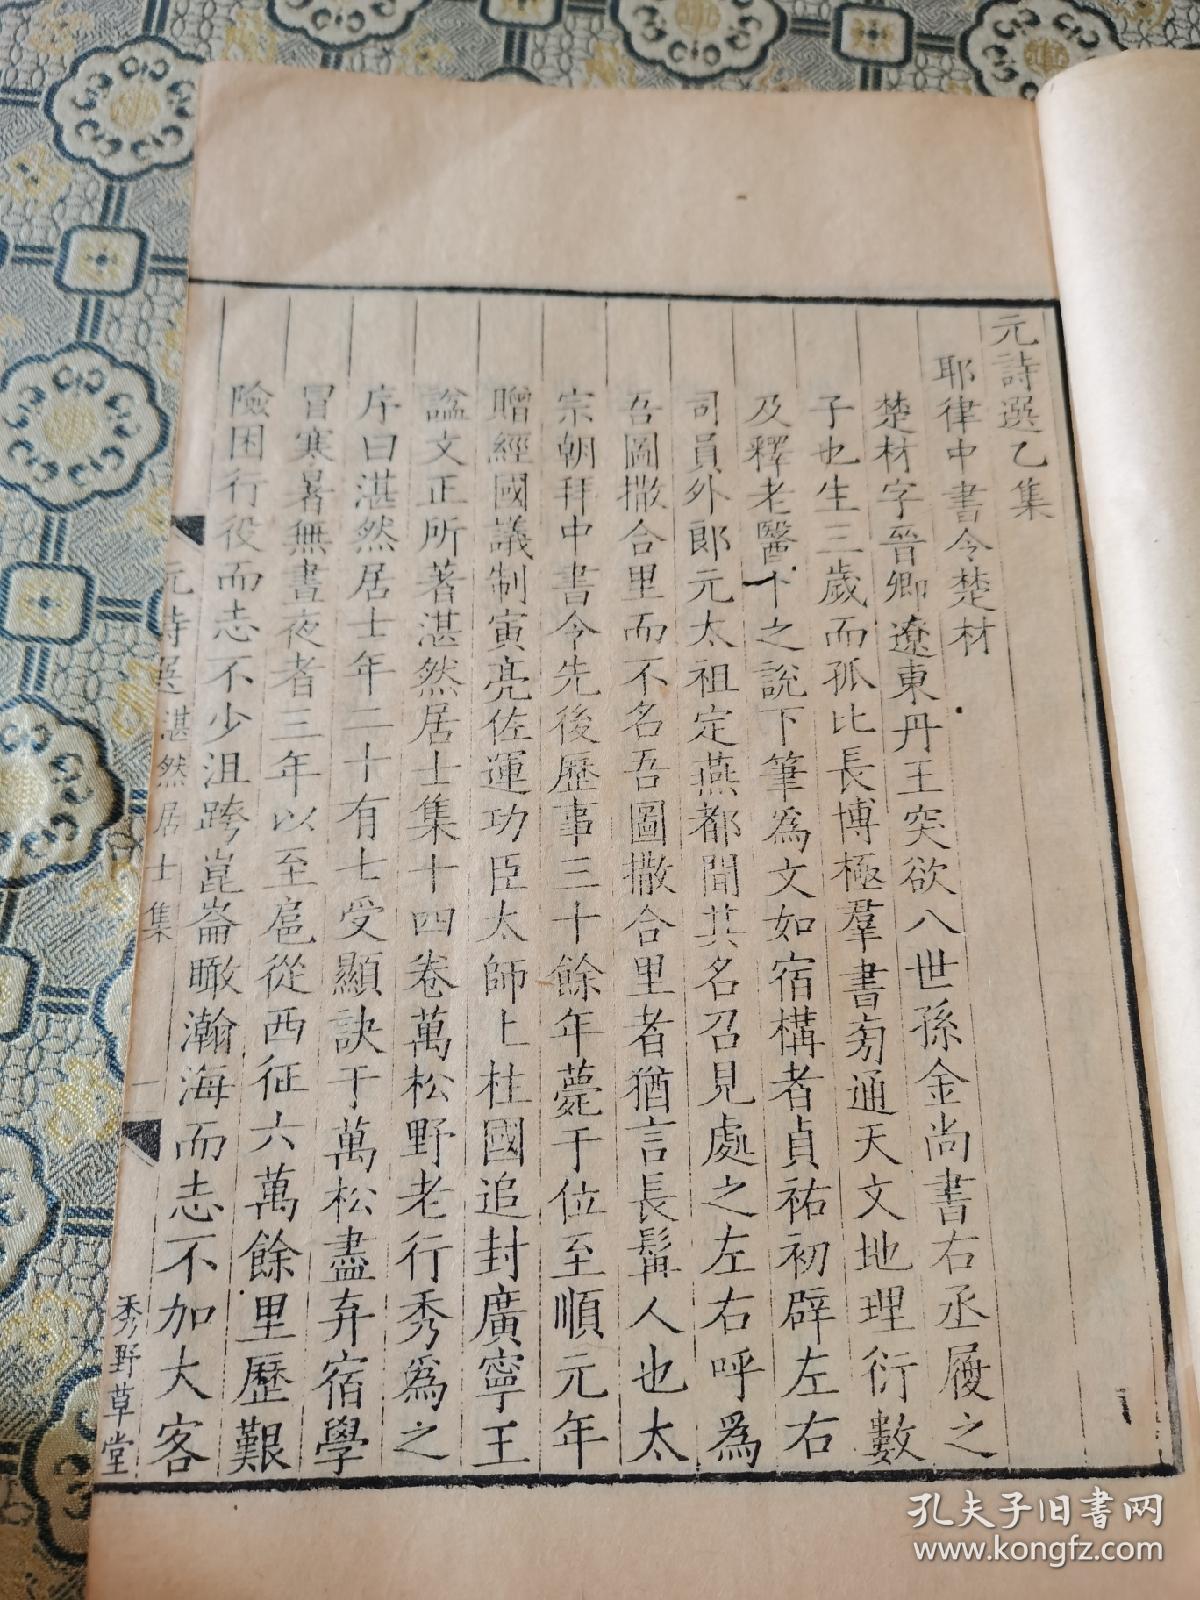 元詩選乙集
耶律中書令楚材
楚材字晉卿遼東丹王突欲八世孫金尚書右丞履之
子也生三歲而孤比長博極羣書旁通天文地理衍數
及釋老醫卜之說下筆爲文如宿構者貞祐初辟左右
司員外郎元太祖定燕都聞其名召見處之左右呼爲
吾圖撒合里而不名吾圖撒合里者猶言長髯人也太
宗朝拜中書令先後歷事三十餘年薨于位至順元年
贈經國議制寅亮佐運功臣太師上柱國追封廣寧王
諡文正所著湛然居士集十四卷萬松野老行秀爲之
序曰湛然居士年二十有七受顯訣于萬松盡弃宿學
冒寒暑無晝夜者三年以至扈從西征六萬餘里歷艱
險困行役而志不少沮跨崑崙瞰瀚海而志不加大客
元詩選湛然居士集 一 秀野草堂
孔夫子旧书网
www.kongfz.com